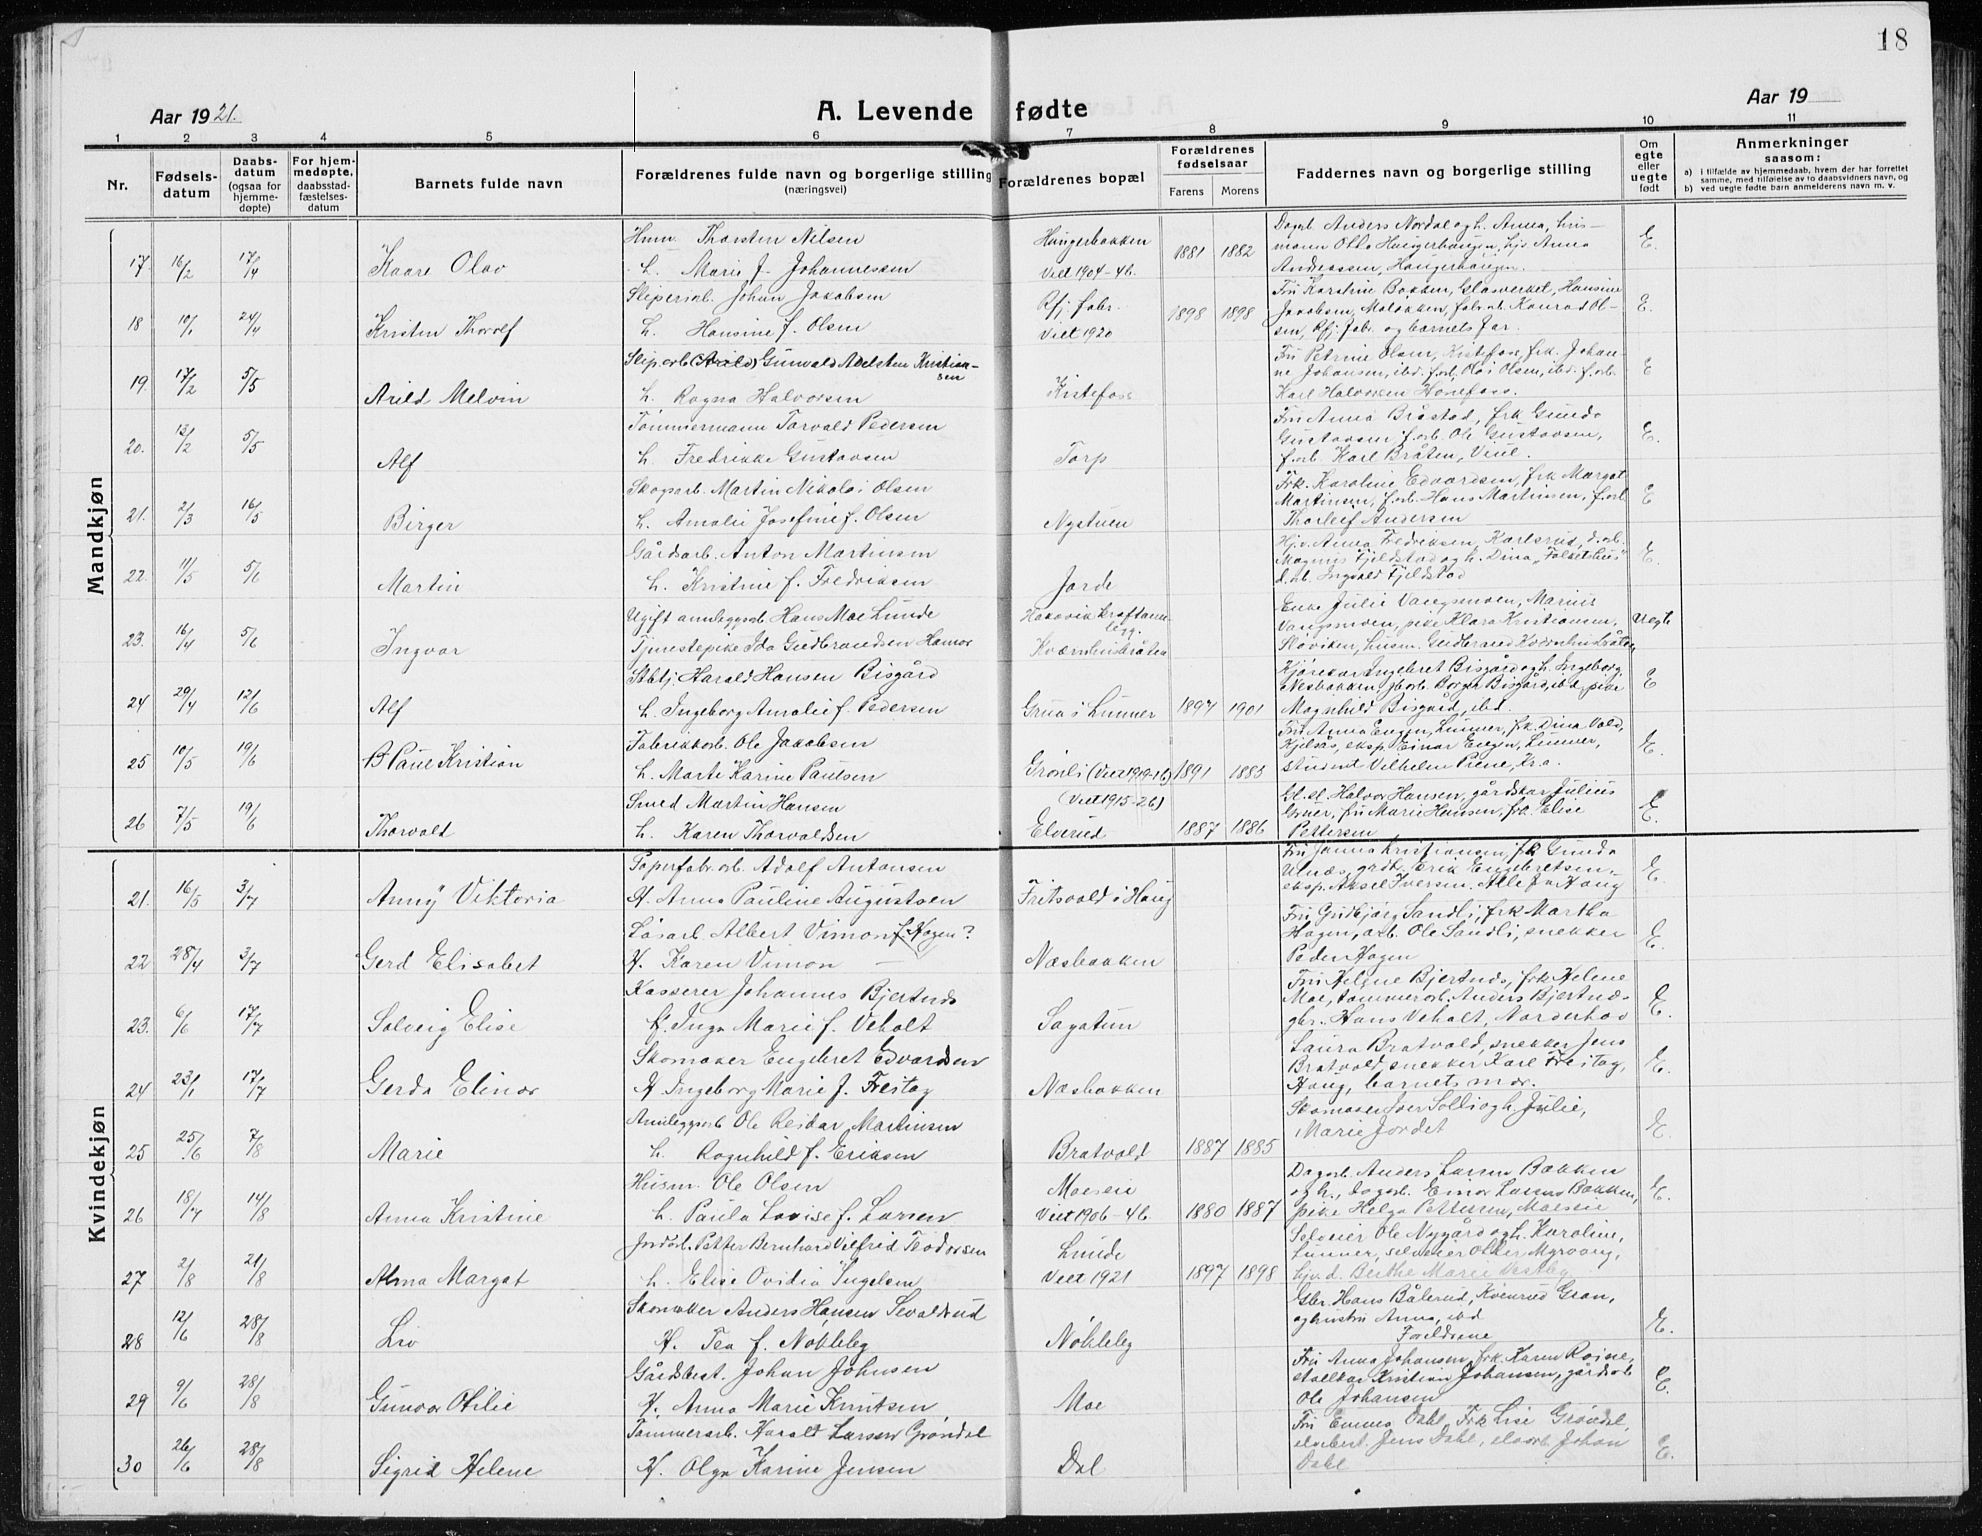 18
Aar 1921.
A. Levende fødte
Aar 19
1 2 3 4 5 6 7 8 9 10 11
Nr.
Fødsels-
datum
Daabs-
datum
(ogsaa for
hjemme-
døpte)
For hjem-
medøpte,
daabsstad-
fæstelses-
datum
Barnets fulde navn
Forældrenes fulde navn og borgerlige stilling
(næringsvei)
Forældrenes bopæl
Forældrenes
fødselsaar
Farens Morens
Faddernes navn og borgerlige stilling
Om
egte
eller
uegte
født
Anmerkninger
saasom:
a) i tilfælde av hjemmedaab, hvem der har forrettet
samme, med tilføielse av to daabsvidners navn, og
b) ved uegte fødte barn anmelderens navn m. v.
Mandkjøn
17 16/2 17/4 Kaare Olav
Husm. Thorsten Nilsen
h. Marie J. Johannessen
Haugerbakken
Viet 1904-46.
1881 1882
Dagarb. Anders Nordal og h. Anna, hus-
mann Otto Haugerhaugen, hjv. Anna
Anderssen, Haugerhaugen.
E.
18 10/1 24/4 Kristen Thorolf
Sliperiarb. Johan Jakobsen
h. Hansine f. Olsen
Rfj. fabr.
Viet 1920
1898 1898
Fru Karstine Bakken, Glasverket, Hansine
Jakobsen, Moløkken, fabr.arb. Konrad Ol-
sen, Rfj. fabr. og barnets far.
E.
19. 17/2 5/5 Arild Melvin
Sliperb. (Arild) Gunvald Adelsten Kristian-
sen
h. Ragna Halvorsen
Kistefoss
Fru Petrine Olsen, Kistefoss, frk. Johan-
ne Johansen, ibd. f.arb. Olai Olsen, ibd. f.arb.
Karl Halvorsen Hønefoss.
E
20. 13/2 5/5 Alf
Tømmermann Torvald Pedersen
h. Fredrikke Gustavsen
Torp
Fru Anna Bråstad, frk Gunda
Gustavsen f.arb. Ole Gustavsen,
f.arb. Karl Bråten, Viul.
E.
21. 2/3 16/5 Birger
Skogsarb. Martin Nikolai Olsen
h. Amalie Josefine f. Olsen
Nystuen
Frk. Karoline Edvardsen, frk Margat
Martinsen, f.arb. Hans Martinsen, f.arb
Thorleif Andersen
E
22. 11/5 5/6 Martin
Gårdarb. Anton Martinsen
h. Kristine f. Fredriksen
Jorde
Hjv. Anna Fredriksen, Karlsrud, d.arb.
Magnus Fjeldstad og h. Dina "Folsethus"
d.arb. Ingvald Fjeldstad
E.
23. 16/4 5/6 Ingvar
Ugift anleggsarb Hans Moe Lunde
Tjenestepike Ida Gudbrandsen Hamar
Hakavik kraftann
legg.
Kværnhusbråten
Enke Julie Vangsmoen, Marius
Vangsmoen, pike Klara Kristiansen,
Sløviken, husm. Gudbrand Kværnhusbråten
Uegte
24 29/4 12/6 Alf
Stbtj. Harald Hansen Bisgård
h. Ingeborg Amalie f. Pedersen
Grua i Lunner
1897 1901
Kjørekar Ingebret Bisgård og h. Ingeborg
Nesbakken, jb.arb. Borger Bisgård, ibd., pike
Magnhild Bisgård, ibd.
E
25 10/5 19/6 Paul Kristian
Fabrikkarb. Ole Jakobsen
h. Marte Karine Paulsen
Grønli (Viet 1919-16)
1891 1885
Fru Anna Engen, Lunner, frk. Dina Vold,
Kjelsås, eksp. Einar Engen, Lunner,
student Vilhelm Piene, Kra.
E.
26 7/5 19/6 Thorvald
Smed Martin Hansen
h. Karen Thorvaldsen
(Viet 1915-26)
Elverud
1887 1886
Gl.sl. Halvor Hansen, gårdskar Julius
Gruer, fru Marie Hansen, frk. Elise
Pettersen
E.
Kvindekjøn
21. 16/5 3/7 Anny Viktoria
Papirfabr.arb. Adolf Antonsen
H. Anna Pauline Augustsen
Fritsvold i Haug
Fru Janna Kristiansen, frk Gunda
Ulnæs, grdbr. Erik Engebretsen,
eksp. Aksel Iversen. Alle fra Haug
E.
22 28/4 3/7 Gerd Elisabet
Løsarb. Albert Vimon f. Hagen?
H. Karen Vimon
Næsbakken
Fru Gudbjørg Sandli, frk Martha
Hagen, arb. Ole Sandli, snekker
Peder Hagen
E.
23. 6/6 17/7 Solveig Elise
Kasserer Johannes Bjertnæs
H. Inga Marie f. Veholt
Sagatun
Fru Helene Bjertnæs, frk Helene
Moe, tømmerarb. Anders Bjertnæs
gbr. Hans Veholt, Norderhov
E.
24 23/1 17/7 Gerda Elinor
Skomaker Engebret Edvardsen
H Ingeborg Marie f. Freitag
Næsbakken
Laura Bratvold, snekker Jens
Bratvold, snekker Karl Freitag,
Haug, barnets mor.
E.
25 25/6 7/8 Marie
Anleggsarb Ole Reidar Martinsen
h. Ragnhild f. Eriksen
Bratvold
1887 1885
Skomaker Iver Solli og h. Julie,
Marie Jordet
E.
26 18/7 14/8 Anna Kristine
Husm. Ole Olsen
h. Paula Lovise f. Larsen
Moeseie
Viet 1906-46.
1880 1887
Dagarb. Anders Larsen Bakken
og h., dagarb. Einar Larsen Bakken,
pike Helga Pettersen, Moeseie
E.
27 2/8 21/8 Alma Margat
Jordarb. Petter Bernhard Vilfrid Teodorsen
h. Elise Ovidia Ingelsen
Lunde
Viet 1921
1897 1898
Selveier Ole Nygård og h. Karoline,
Lunner, selveier Oliver Myrvang,
hjv.d. Berthe Marie Vestby
28 12/6 28/8 Liv
Skomaker Anders Hansen Sevaldrud
H. Tea f. Nøkleby
Nøkleby
Gbr. Hans Bålerud, Kvenrud Gran,
og hustru Anna, ibd
Foreldrene
E.
29 9/6 28/8 Gunvor Otilie
Gårdbest. Johan Johnsen
H. Anna Marie Knutsen
Moe
Fru Anna Johansen, frk. Karen Roine,
stallkar Kristian Johansen, gårdsarb
Ole Johansen
E.
30 26/6 28/8 Sigrid Helene
Tømmerarb. Harald Larsen Grøndal
H. Olga Karine Jensen
Dal
Fru Emma Dahl, Frk Lise Grøndal,
elvebest. Jens Dahl, elvarb. Johan
Dahl
E.